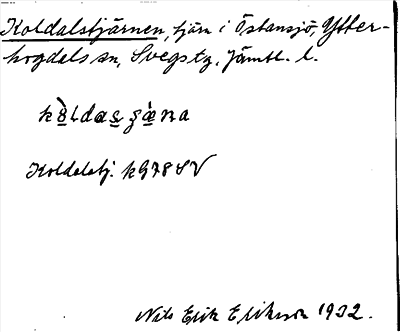 Koldalstjärnen, tjärn i Östansjö, Ytter-
hogdals sn, Svegs tg, Jämtl. l.
kòldas̲ ʒæ̀na
Koldalstj. kG78SV
Nils Erik Eriksson 1932.